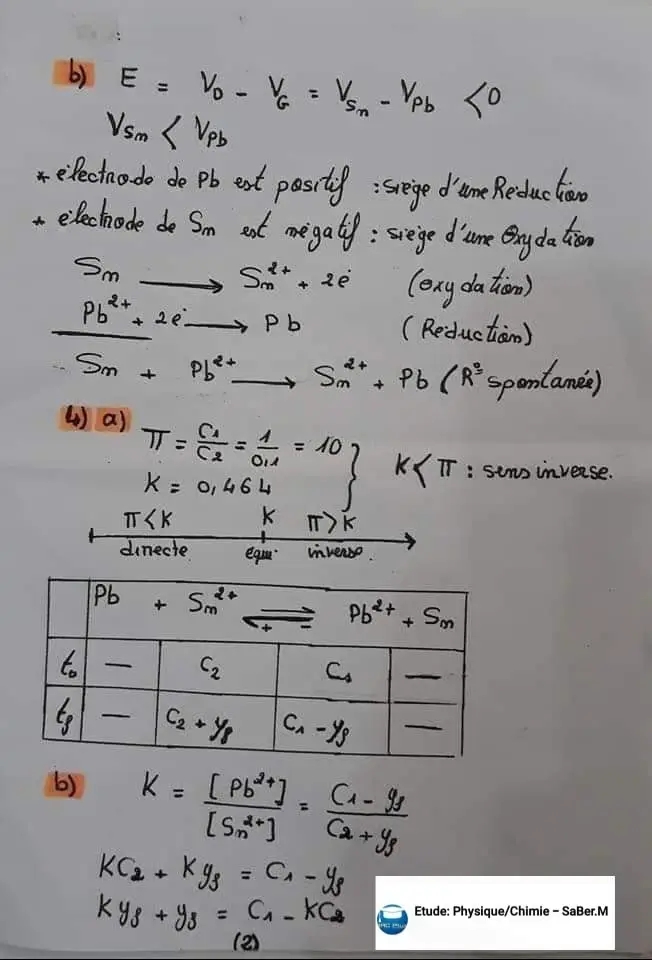 b) E = V_D - V_G = V_Sn - V_Pb < 0
V_Sn < V_Pb
* électrode de Pb est positif : siège d'une Réduction
* électrode de Sn est négatif : siège d'une Oxydation
Sn → Sn²⁺ + 2é (oxydation)
Pb²⁺ + 2é → Pb (Réduction)
Sn + Pb²⁺ → Sn²⁺ + Pb (R° spontanée)
4) a) π = C₁/C₂ = 1/0,1 = 10
K = 0,464
K < π : sens inverse.
π < K K π > K
directe équi. inverse.
Pb + Sn²⁺ ⇌ Pb²⁺ + Sn
+ -
t₀ — C₂ C₁ —
t_f — C₂ + y_f C₁ - y_f —
b) K = [Pb²⁺]/[Sn²⁺] = (C₁ - y_f)/(C₂ + y_f)
KC₂ + Ky_f = C₁ - y_f
Ky_f + y_f = C₁ - KC₂
(2)
Etude: Physique/Chimie – SaBer.M